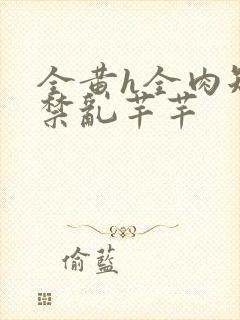 全黄h全肉短
禁乱芊芊
偷蓝